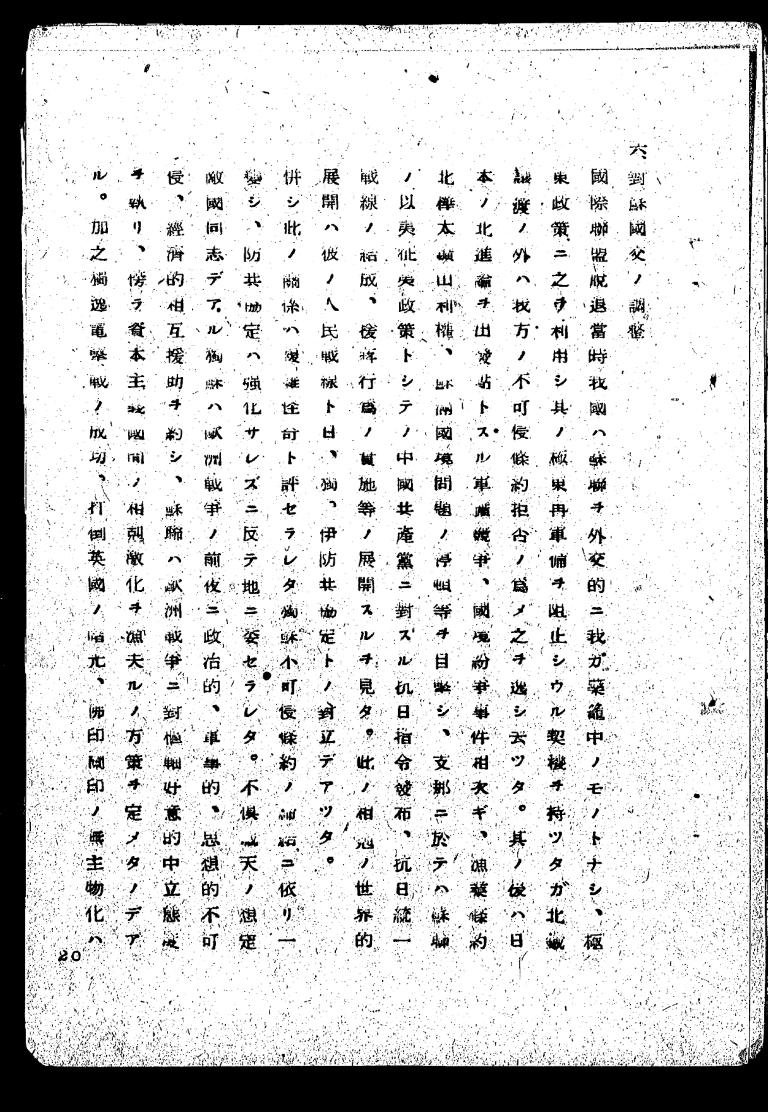 六、對蘇國交ノ調整
國際聯盟脫退當時我國ハ蘇聯ヲ外交的ニ我ガ藥籠中ノモノトナシ、極
東政策ニ之ヲ利用シ其ノ極東再軍備ヲ阻止シウル契機ヲ持ツタガ北鐵
讓渡ノ外ハ我方ノ不可侵條約拒否ノ爲メ之ヲ逸シ去ツタ。其ノ後ハ日
本ノ北進論ヲ出發點トスル軍備競爭、國境紛爭事件相次ギ、漁業條約
北樺太鑛山利權、蘇滿國境問題ノ停頓等ヲ目擊シ、支那ニ於テハ蘇聯
ノ以夷征夷政策トシテノ中國共產黨ニ對スル抗日指令發布、抗日統一
戰線ノ結成、援蔣行爲ノ實施等ノ展開スルヲ見タ。此ノ相剋ノ世界的
展開ハ彼ノ人民戰線ト日、獨、伊防共協定トノ對立デアツタ。
併シ此ノ關係ハ複雜怪奇ト評セラレタ獨蘇不可侵條約ノ締結ニ依リ一
變シ、防共協定ハ强化サレズニ反テ地ニ委セラレタ。不俱戴天ノ想定
敵國同志デアル獨蘇ハ歐洲戰爭ノ前夜ニ政治的、軍事的、思想的不可
侵、經濟的相互援助ヲ約シ、蘇聯ハ歐洲戰爭ニ對樞軸好意的中立態度
ヲ執リ、傍ラ資本主義國間ノ相剋敵化ヲ漁夫ルノ方策ヲ定メタノデア
ル。加之獨逸電擊戰ノ成功、打倒英國ノ呼號、佛印蘭印ノ無主物化ハ
20